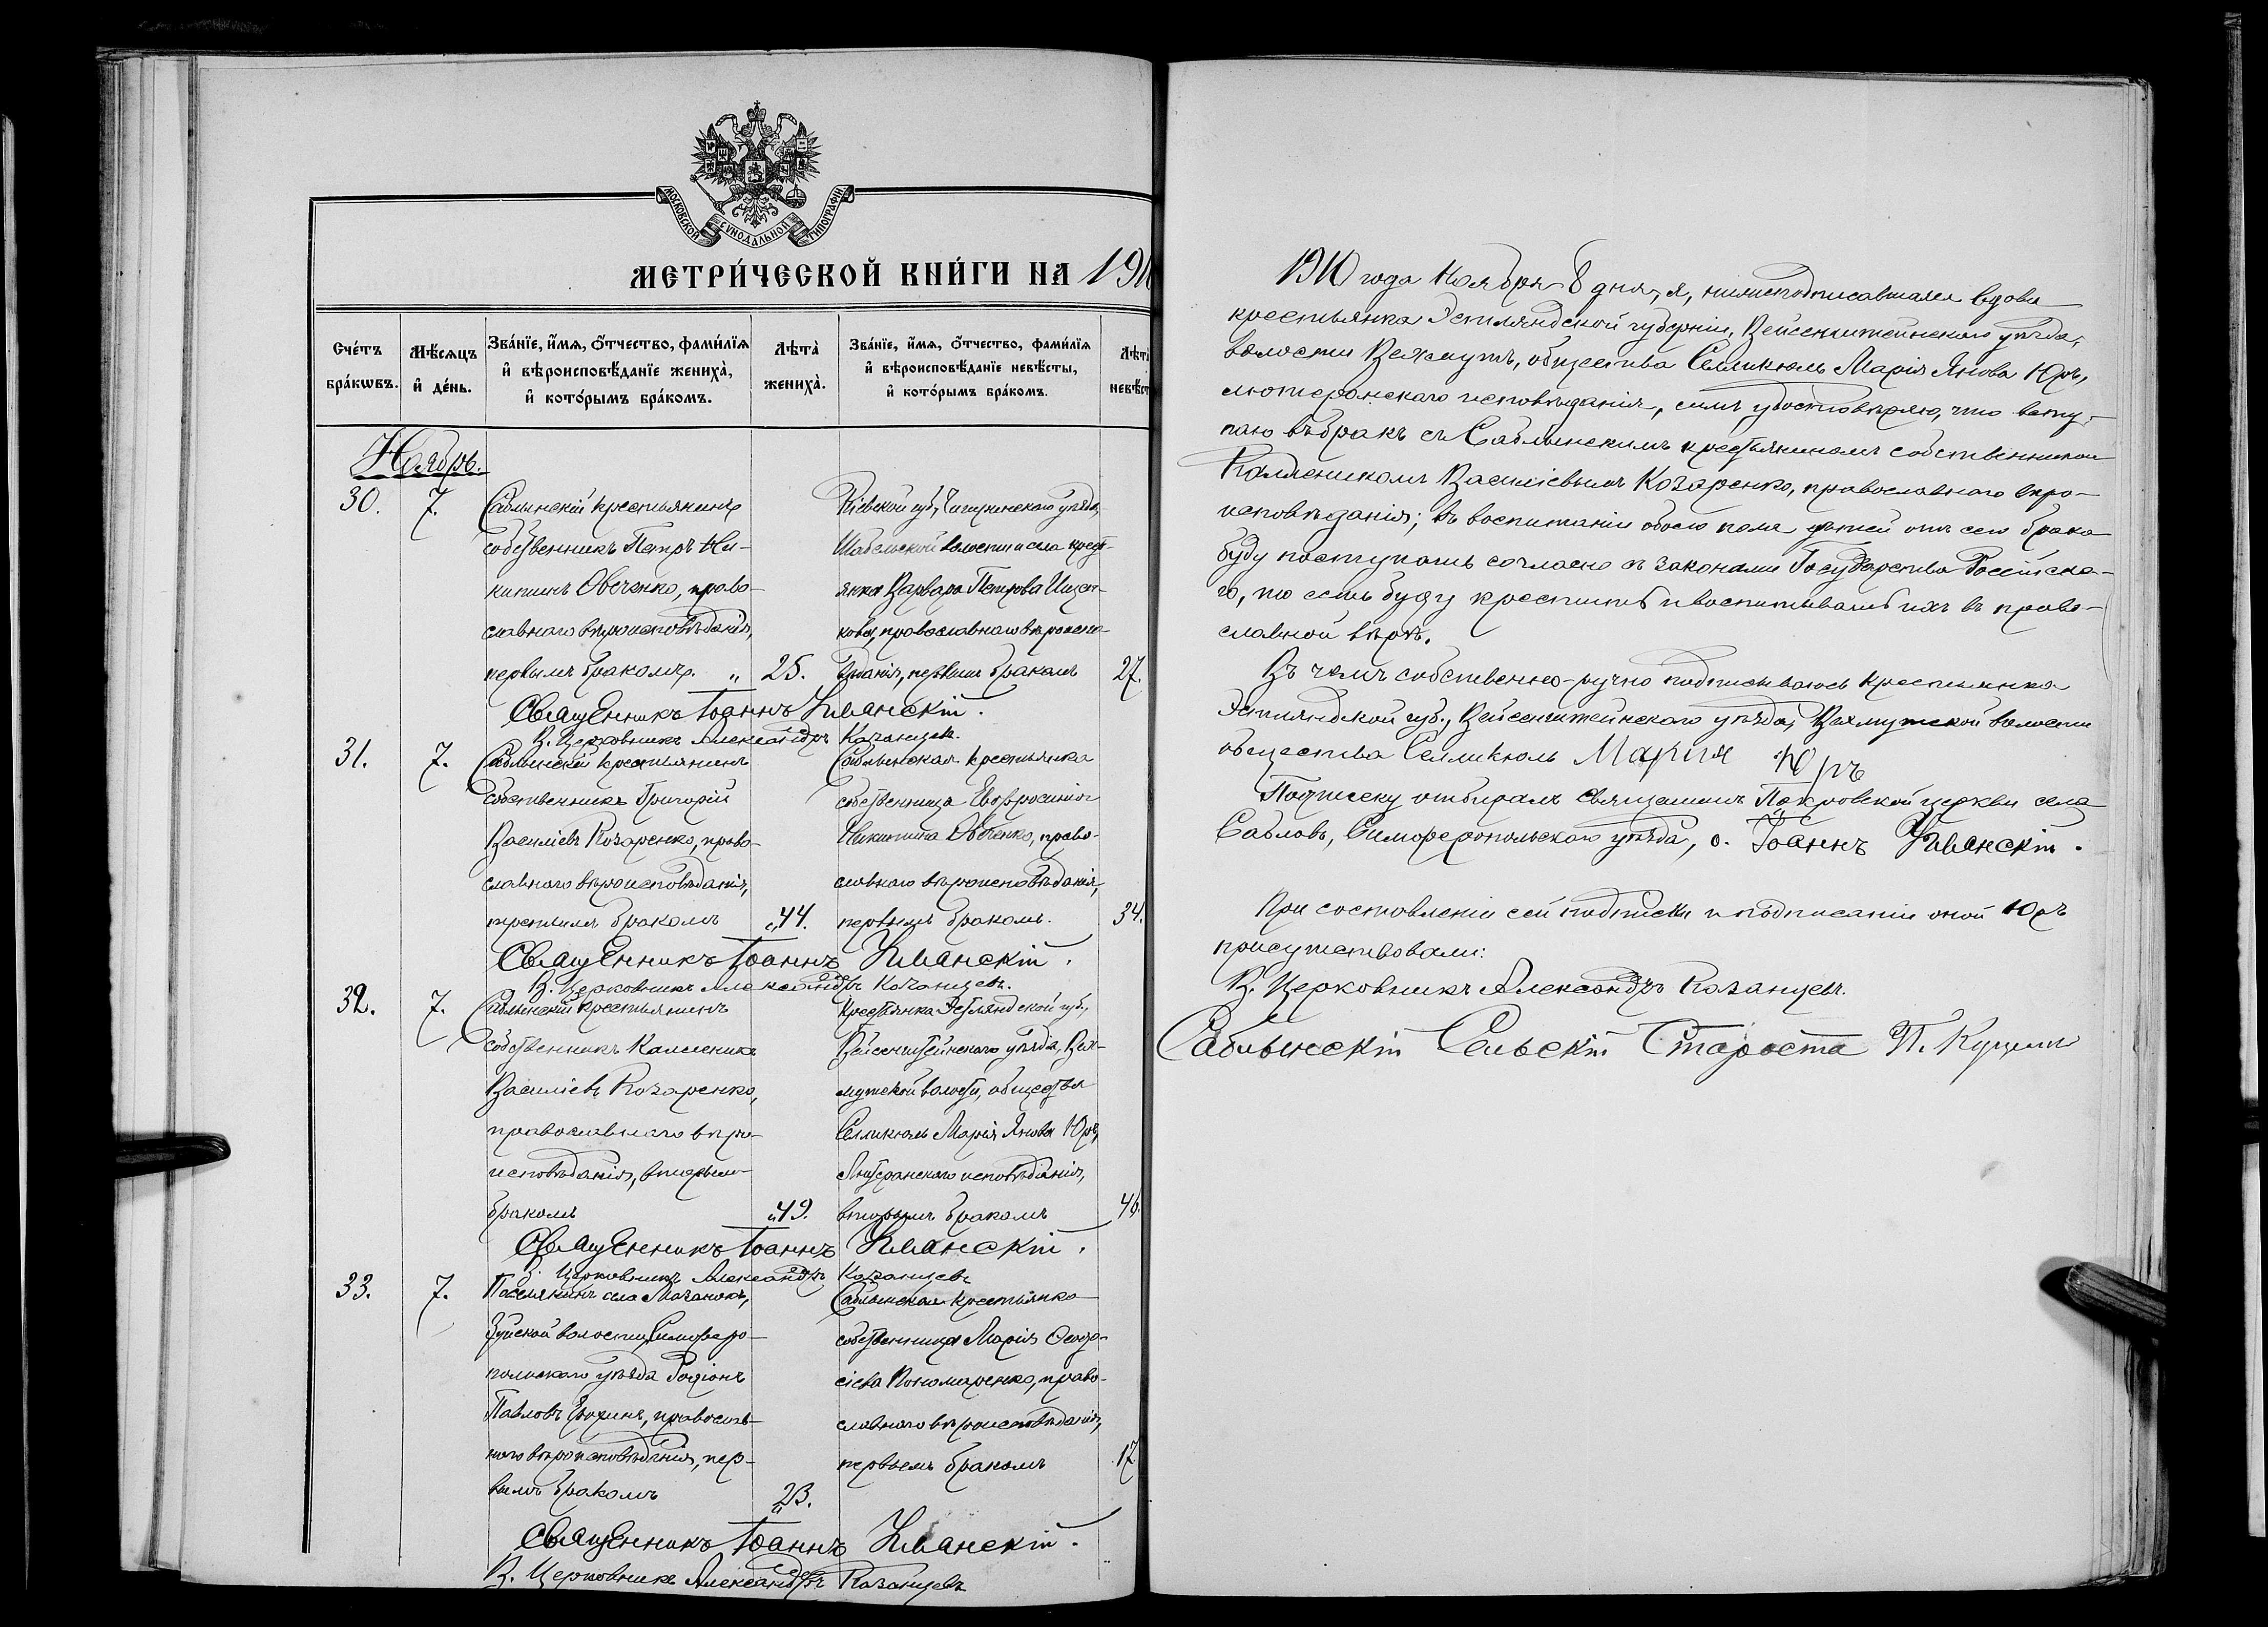 МОСКОВСКОЙ СѴНОДАЛЬНОЙ ТИПОГРАФІИ
МЕТРИ́ЧЕСКОЙ КНИ́ГИ НА 1910
Сче́тъ бра́кωвъ.
Мѣ́сѧцъ и҆ де́нь.
Зва́нїе, и҆́мѧ, ѻ҆́тчество, фами́лїѧ и҆ вѣроисповѣ́данїе жениха̀, и҆ кото́рымъ бра́комъ.
Лѣта̀ жениха̀.
Зва́нїе, и҆́мѧ, ѻ҆́тчество, фами́лїѧ и҆ вѣроисповѣ́данїе невѣ́сты, и҆ кото́рымъ бра́комъ.
Лѣта̀ невѣст
Ноябрь.
30.
7.
Саблынскій крестьянинъ
собственникъ Петръ Ни-
китинъ Овченко, право-
славнаго вѣроисповѣданія,
первымъ бракомъ. „
25.
Кіевской губ., Чигиринскаго уѣзда,
Шабельской волости и села крест-
янка Варвара Петрова Ищен-
кова, православнаго вѣроиспо-
вѣданія, первымъ бракомъ
27.
Священникъ Іоаннъ Уманскій.
В. Церковникъ Александръ Казанцевъ.
31.
7.
Саблынскій крестьянинъ
собственникъ Григорій
Василіевъ Козаренко, право-
славнаго вѣроисповѣданія,
третьимъ бракомъ
„44.
Саблынская крестьянка
собственница Евфросинія
Никитина Овченко, право-
славнаго вѣроисповѣданія,
первымъ бракомъ.
34.
Священникъ Іоаннъ Уманскій.
В. Церковникъ Александръ Казанцевъ.
32.
7.
Саблынскій крестьянинъ
собственникъ Каллиникъ
Василіевъ Козаренко,
православнаго вѣро-
исповѣданія, вторымъ
бракомъ
„49.
Крестьянка Эстляндской губ.,
Вейсенштейнскаго уѣзда, Вях-
мутской волости, общества
Селликюль Марія Янова Юръ,
Лютеранскаго исповѣданія,
вторымъ бракомъ
46.
Священникъ Іоаннъ Уманскій.
В. Церковникъ Александръ Казанцевъ
33.
7.
Поселянинъ села Мазанокъ,
Зуйской волости, Симферо-
польскаго уѣзда Родіонъ
Павловъ, православ-
наго вѣроисповѣданія, пер-
вымъ бракомъ
23.
Саблынская крестьянка
собственница Марія Ѳеодо-
сіева Пономаренко, право-
славнаго вѣроисповѣданія,
первымъ бракомъ
17
Священникъ Іоаннъ Уманскій.
В. Церковникъ Александръ Казанцевъ
1910 года Ноября 8 дня, я, нижеподписавшаяся вдова
крестьянка Эстляндской губерніи, Вейсенштейнскаго уѣзда,
волости Вяхмутъ, общества Селликюль Марія Янова Юръ,
лютеранскаго исповѣданія, симъ удостовѣряю, что всту-
паю въ бракъ съ Саблынскимъ крестьяниномъ собственникомъ
Каллиникомъ Василіевымъ Козаренко, православнаго вѣро-
исповѣданія; въ воспитаніи обоего пола дѣтей отъ сего брака
буду поступать согласно съ законами Государства Россійска-
го, то есть буду крестить и воспитывать ихъ въ право-
славной вѣрѣ.
Въ чемъ собственно-ручно подписываюсь крестьянка
Эстляндской губ., Вейсенштейнскаго уѣзда, Вяхмутской волости
общества Селликюль Мария Юръ
Подписку отбиралъ священникъ Покровской церкви села
Сабловъ, Симферопольскаго уѣзда, о. Іоаннъ Уманскій.
При составленіи сей подписки и подписаніи оной Юръ
присутствовали:
В. Церковникъ Александръ Казанцевъ.
Саблынскій Сельскій Староста П.